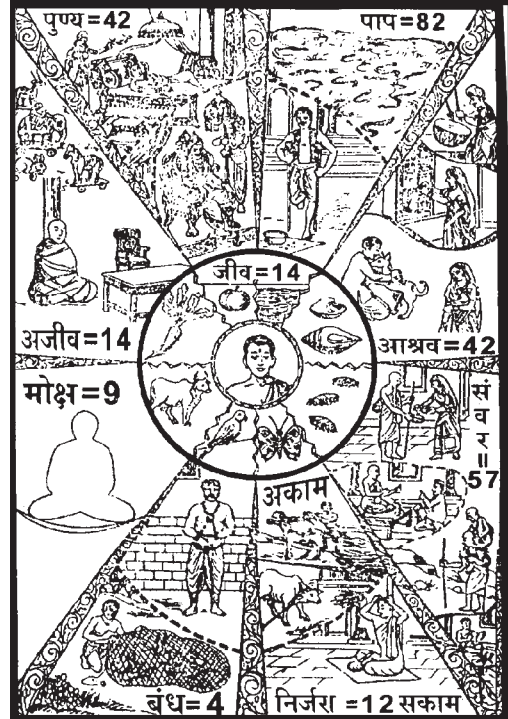 पुण्य=42
पाप=82
जीव=14
अजीव=14
आश्रव=42
मोक्ष=9
संवर॥
57
अकाम
बंध=4
निर्जरा=12 सकाम